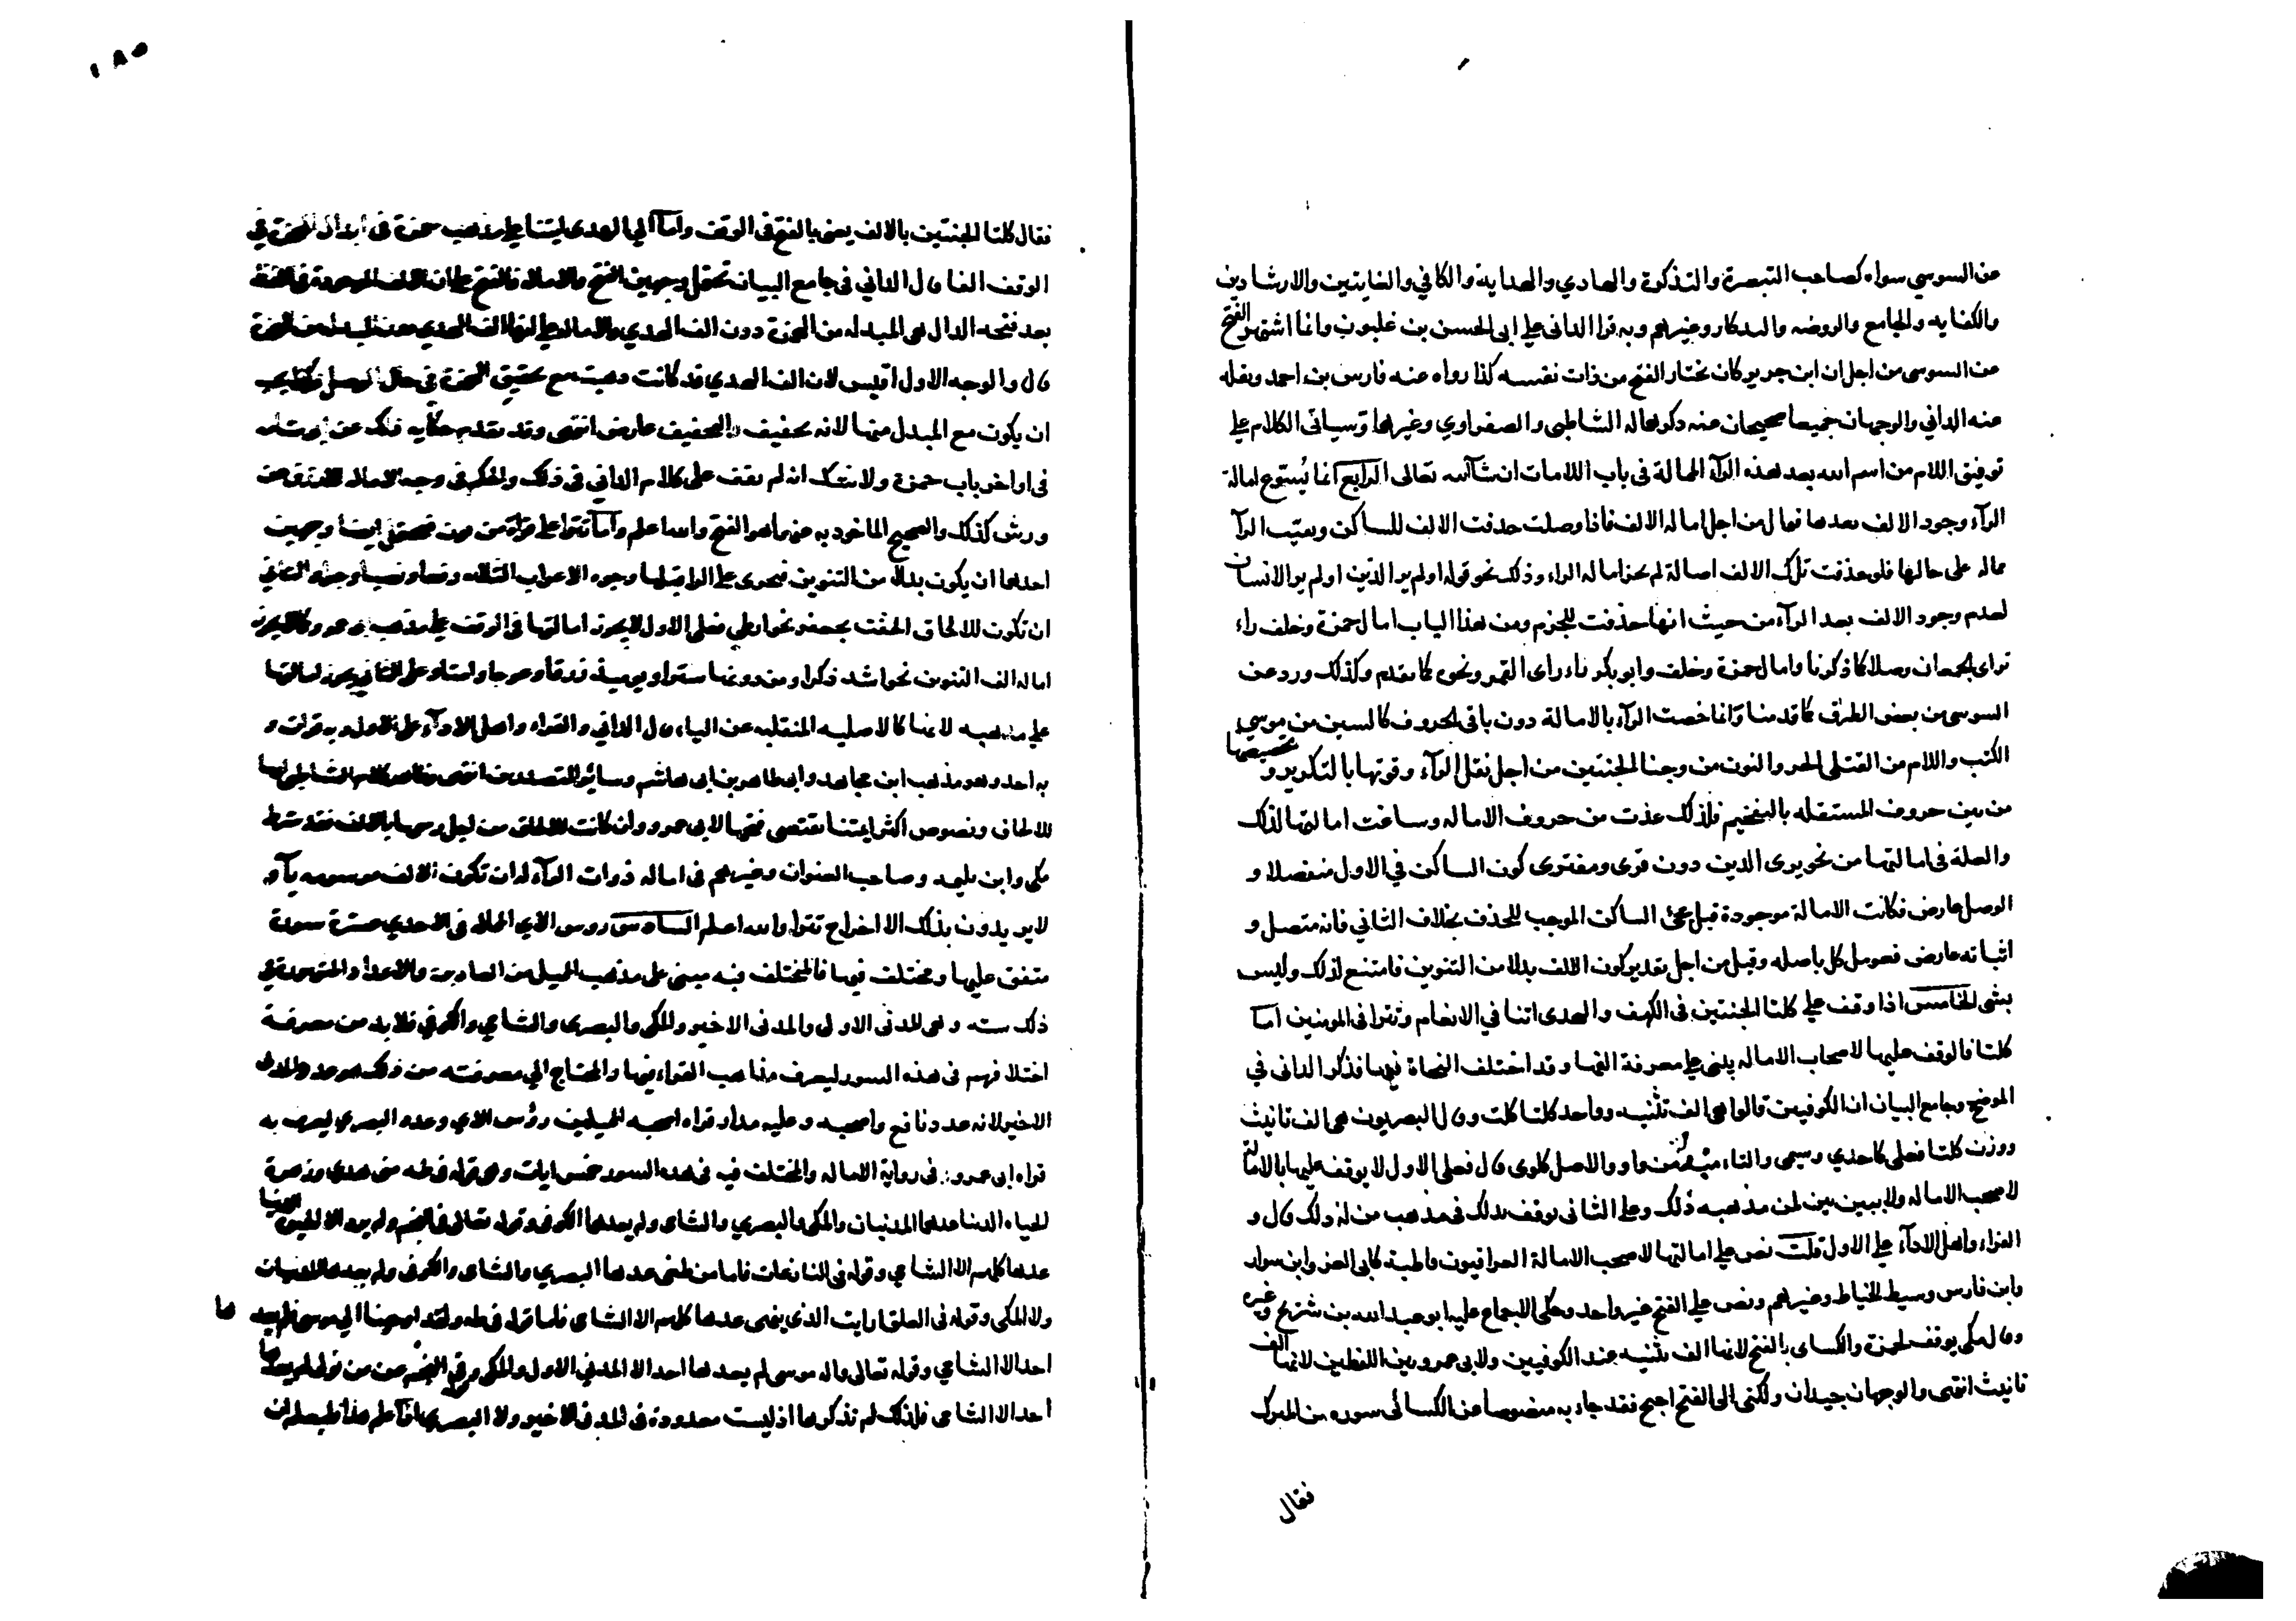 عن السوسي سواه كصاحب التبصرة والتذكرة والهادي والهداية والكافي والغايتين والارشادين
والكفايه والجامع والروضه والتدكار وغيرهم وبه قرا الداني علي ابى الحسن بن غلبون وانما اشتهر الفتح
عن السوسى من اجل ان ابن جرير كان يختار الفتح من ذات نفسه كذا رواه عنه فارس بن احمد ونقله
عنه الداني والوجهان جميعا صحيحان عنه ذكرهما له الشاطبى والصفراوي وغيرهما وسياتى الكلام علي
ترقيق اللام من اسم الله بعد هذه الرآء الممالة في باب اللامات ان شآء الله تعالى الرابع انما يُسوّغ امالة
الرآء وجود الالف بعدها فتمال من اجل اماله الالف فاذا وصلت حذفت الالف للساكن وبقيت الرآ
مماله على حالها فلو حذفت تلك الالف اصالة لم يجز اماله الراء وذلك نحو قوله اولم ير الذين اولم ير الانسان
لعدم وجود الالف بعد الرآء من حيث انها حذفت للجزم ومن هذا الباب امال حمزة وخلف راء
تراى الجمعان وصلا كما ذكرنا وامال حمزة وخلف وابو بكر راء راى القمر ونحوه كما تقدم وكذلك ورد عن
السوسى من بعض الطرق كما قدمنا وانما خصت الرآء بالامالة دون باقى الحروف كالسين من موسي
الكتب واللام من القتلى الحر والنون من وجنا الجنتين من اجل ثقل الرآء وقوتها بالتكرير وتخصيصها
من بين حروف المستفله بالتفخيم فلذلك عدت من حروف الاماله وساغت امالتها لذلك
والعلة في امالتها من نحو يرى الذين دون قرى ومفترى كون الساكن في الاول منفصلا و
الوصل عارض فكانت الامالة موجودة قبل مجئ الساكن الموجب للحذف بخلاف الثاني فانه متصل و
اثباته عارض فعومل كل باصله وقيل من اجل تقدير كون الالف بدلا من التنوين فامتنع لذلك وليس
بشى الخامس اذا وقف علي كلتا الجنتين في الكهف والهدى اتنا في الانعام وتترا في المومنين اما
كلتا فالوقف عليها لاصحاب الاماله يبنى علي معرفة الفها وقد اختلف النحاة فيها فذكر الدانى في
الموضح وجامع البيان ان الكوفيين قالوا هي الف تثنيه وواحد كلتا كلت وقال البصريون هي الف تانيث
ووزن كلتا فعلى كاحدي وسيمى والتاء مبدلة من واو والاصل كلوى قال فعلى الاول لا يوقف عليها بالامالة
لاصحاب الاماله ولا ببين بين لمن مذهبه ذلك وعلى الثانى يوقف بذلك في مذهب من له ذلك قال و
القراء واهل الادآء علي الاول قلت نص على امالتها لاصحاب الامالة العراقيون قاطبة كابي العز وابن سوار
وابن فارس وسبط الخياط وغيرهم ونص علي الفتح غير واحد وحكى الاجماع عليه ابو عبد الله بن شريح وغيره
وقال مكي يوقف لحمزة والكساى بالفتح لانها الف تثنيه عند الكوفيين ولابى عمرو بين اللفظين لانها الف
تانيث انتهى والوجهان جيدان ولكنى الى الفتح اجنح فقد جاء به منصوصا عن الكسائى سوره بن المبارك
فقال
١٨٥
فقال كلتا الجنتين بالالف يعنى بالفتح في الوقف واما الي الهدى ايتنا علي مذهب حمزة في ابدال الهمزة في
الوقف الفا قال الداني في جامع البيان يحتمل وجهين الفتح والامالة فالفتح علي ان الالف الموجودة في اللفظ
بعد فتحة الدال هي المبدله من الهمزة دون الف الهدي والامالة علي انها الف الهدي دون المبدلة من الهمزة
قال والوجه الاول اقيس لان الف الهدي قد كانت ذهبت مع تحقيق الهمزة في حال الوصل فكذا يجب
ان يكون مع المبدل منها لانه تخفيف والتخفيف عارض انتهى وقد تقدم حكاية ذلك عن ابي شامه
في اواخر باب حمزة ولا شك انه لم يقف على كلام الداني في ذلك والحكم في وجه الامالة للازرق عن
ورش كذلك والصحيح الماخوذ به عنهما هو الفتح والله اعلم واما تترا علي قراة من نون فيحتمل ايضا وجهين
احدهما ان يكون بدلا من التنوين فتجرى على الرا قبلها وجوه الاعراب الثلاثه رفعا ونصبا وجرا والثاني
ان تكون للالحاق الحقت بجعفر نحو ارطي فعلى الاول لا يجوز امالتها في الوقف علي مذهب ابي عمرو كما لا يجوز
اماله الف التنوين نحو اشد ذكرا ومن دونها سترا ويوميذ زرقا وعوجا وامتا وعلى الثاني يجوز امالتها
علي مذهبه لانها كالاصليه المنقلبه عن الياء قال الداني والقراء واهل الادآء على الاول وبه قرات و
به اخذ وهو مذهب ابن مجاهد وابى طاهر بن ابى هاشم وساير المتصدرين انتهى وظاهر كلام الشاطبي انها
للالحاق ونصوص اكثر ايمتنا تقتضى فتحها لابي عمرو وان كانت للالحاق من اجل رسمها بالالف فقد شرط
مكي وابن بليمه وصاحب العنوان وغيرهم في اماله ذوات الرآء له ان تكون الالف مرسومه يآء و
لا يريدون بذلك الا اخراج تترا والله اعلم السادس روس الاي الممالة في الاحدي عشرة سورة
متفق عليها ومختلف فيها فالمختلف فيه مبنى على مذهب المميل من العادين والاعداد المشهورة في
ذلك سته وهي المدني الاول والمدنى الاخير والمكي والبصرى والشامي والكوفي فلا بد من معرفة
اختلافهم في هذه السور ليعرف مذاهب القراء فيها والمحتاج الي معرفته من ذلك هو عدد المدني
الاخير لانه عدد نافع واصحابه وعليه مدار قراة اصحابه المميلين رؤس الاي وعدد البصري ليعرف به
قراه ابى عمرو في رواية الاماله والمختلف فيه في هذه السور خمس ايات وهي قوله في طه منى هدي وزهرة
الحياه الدنيا عدهما المدنيان والمكي والبصري والشامى ولم يعدهما الكوفى وقوله تعالى في النجم ولم يرد الا الحيوة الدنيا
عدها كلهم الا الشامي وقوله في النازعات فاما من طغى عدها البصري والشامى والكوفى ولم يعدها المدنيان
ولا المكي وقوله في العلق ارايت الذي ينهى عدها كلهم الا الشامى فاما قوله في طه ولقد اوحينا الي موسى فلم يعدها
احد الا الشامي وقوله تعالى واله موسى لم يعدها احد الا المدني الاول والمكي وقوله في النجم عن من تولى لم يعدها
احد الا الشامى فلذلك لم نذكرها اذ ليست معدودة في المدنى الاخير ولا البصري اذا علم هذا فليعلم ان